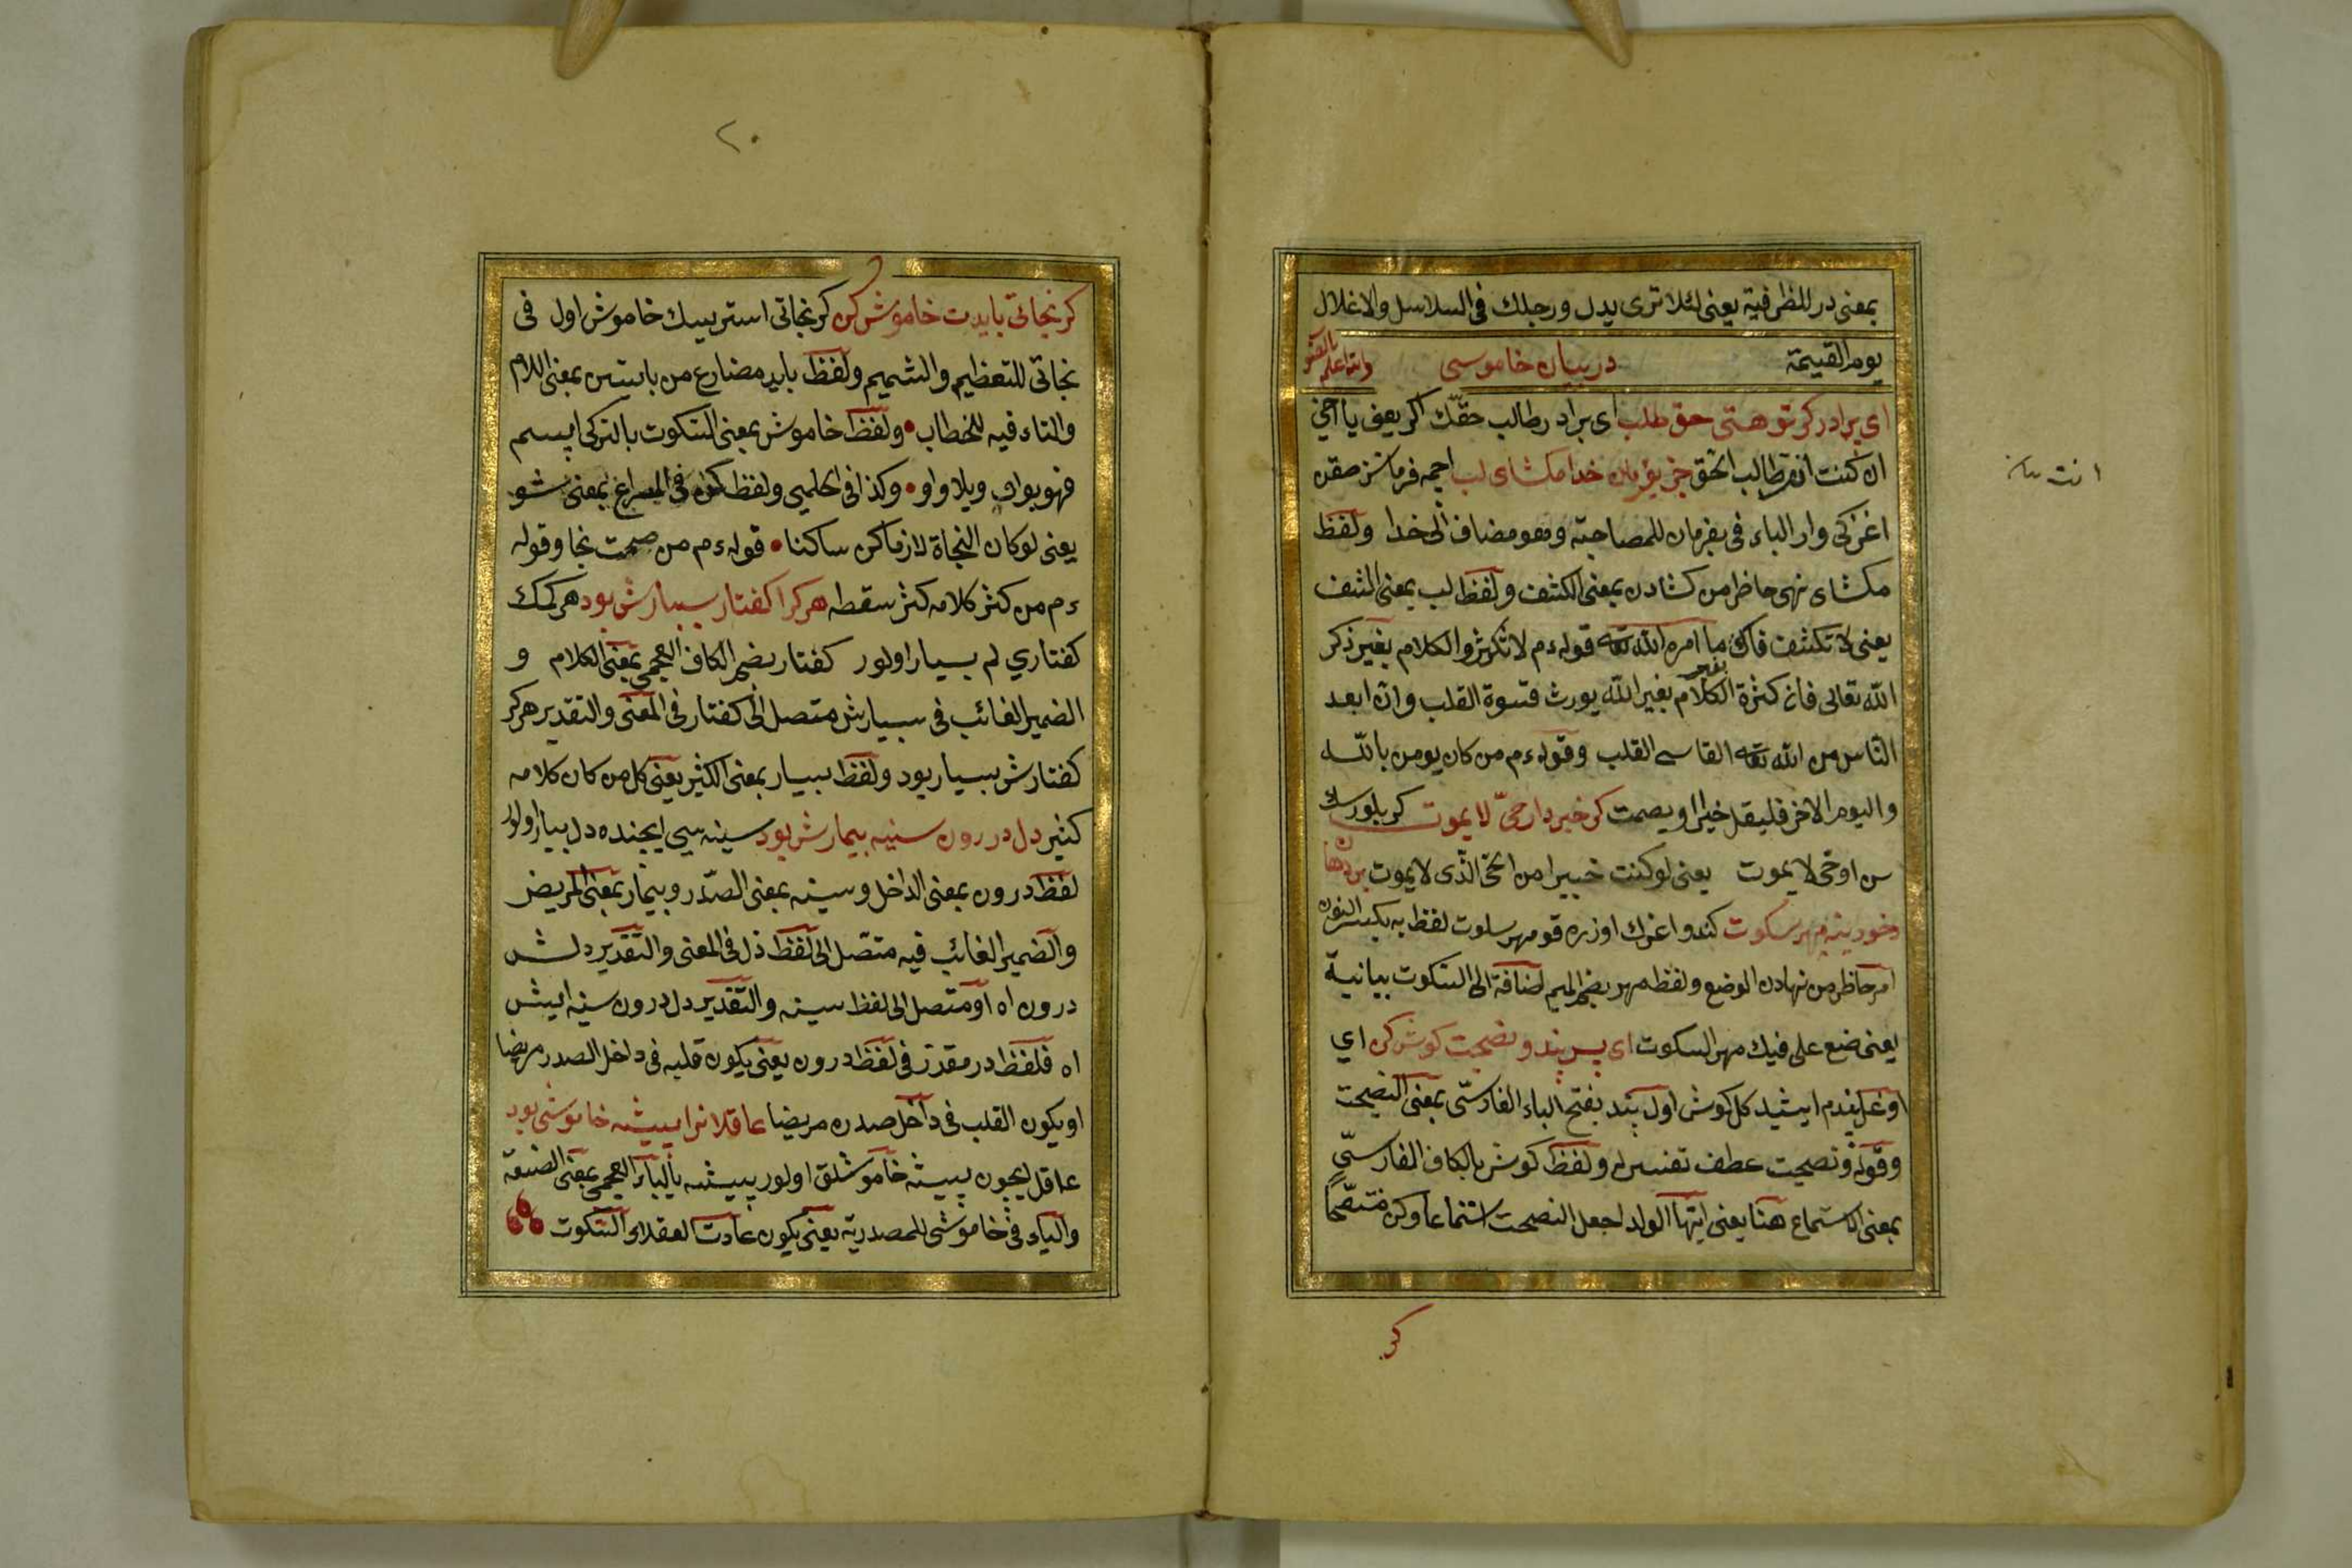 بمعنى در للظرفية يعنى لئلا ترى يدك ورجلك فى السلاسل والاغلال
يوم القيمة در بيان خاموسى والله اعلم
اى برادر كر تو هستى حق طلب اى برادر طالب حقك اكر يعنى يا اخى
ان كنت انت طالب الحق جز بفرمان خدا مكشاى لب اجمه فرماننز حقدن
اغزكى وار الباء فى بفرمان للمصاحبة وهو مضاف الى خدا ولفظ
مكشاى نهى حاظر من كشادن بمعنى الكشف ولفظ لب بمعنى الشف
يعنى لا تكشف فاك ما امره الله تعه قوله ءم لا تكثروا الكلام بغير ذكر
الله تعالى فان كثرة الكلام بغير الله يورث قسوة القلب وان ابعد
الناس من الله تعه القاسى القلب وقوله ءم من كان يومن بالله
واليوم الاخر فليقل خيرا او يصمت كر خبر دارى حى لا يموت كر بلورسك
سن او حى لا يموت يعنى لو كنت خبيرا من الحى الذى لا يموت بر دهان
خود بنه مهر سكوت كندو اغزك اوزره قو مهر سكوت لفظ به بكسر النون
امر حاظر من نهادن الوضع ولفظ مهر بضم الميم اضافة الى السكوت بيانية
يعنى ضع على فيك مهر السكوت اى پسر پند و نصيحت كوش كن اي
اوغل پندم ايشيد كل كوش اول پند بفتح الباء الفارسى بمعنى النصيحت
وقوله ونصيحت عطف تفسير له ولفظ كوش بالكاف الفارسى
بمعنى الاستماع هنا يعنى ايها الولد اجعل النصحت استماعا وكن متنصحا
كر
انت
٢٠
كر نجاتى بايدت خاموش كن كر نجاتى استر ييسك خاموش اول فى
نجاتى للتعظيم والتشميم ولفظ بايد مضارع من بايستن بمعنى اللام
والتاء فيه للخطاب ولفظ خاموش بمعنى السكوت بالتركى ابسم
فهو بواو وبلا واو وكذا فى الحلمى ولفظ كن فى بمعنى شو
يعنى لو كان النجاة لازما كن ساكنا قوله ءم من صمت نجا وقوله
ءم من كثر كلامه كثر سقطه هر كرا كفتار بسيارش بود هر كمك
كفتاري لم بسيار اولور كفتار بضم الكاف العجمى بمعنى الكلام و
الضمير الغائب فى بسيارش متصل الى كفتار فى المعنى والتقدير هر كر
كفتارش بسيار بود ولفظ بسيار بمعنى الكثير يعنى كل من كان كلامه
كثير دل در رون سنيه بيمارش بود سينه سى ايجنده دل بيمار اولور
لفظ درون بمعنى الداخل وسينه بمعنى الصدر وبيمار بمعنى المريض
والضمير الغائب فيه متصل الى لفظ دل فى المعنى والتقدير دلش
درون اه او متصل الى لفظ سينه والتقدير دل درون سينه ايش
اه فلفظ در مقدر فى لفظ درون يعنى يكون قلبه فى داخل الصدر مريضا
او يكون القلب فى داخل صدره مريضا عاقلانرا پيشه خاموشى بود
عاقل ايجون پيشه خاموشلق اولور پيشه بالباء العجمى بمعنى الصنعة
والياء فى خاموشى للمصدرية يعنى يكون عادت لعقلاى السكوت